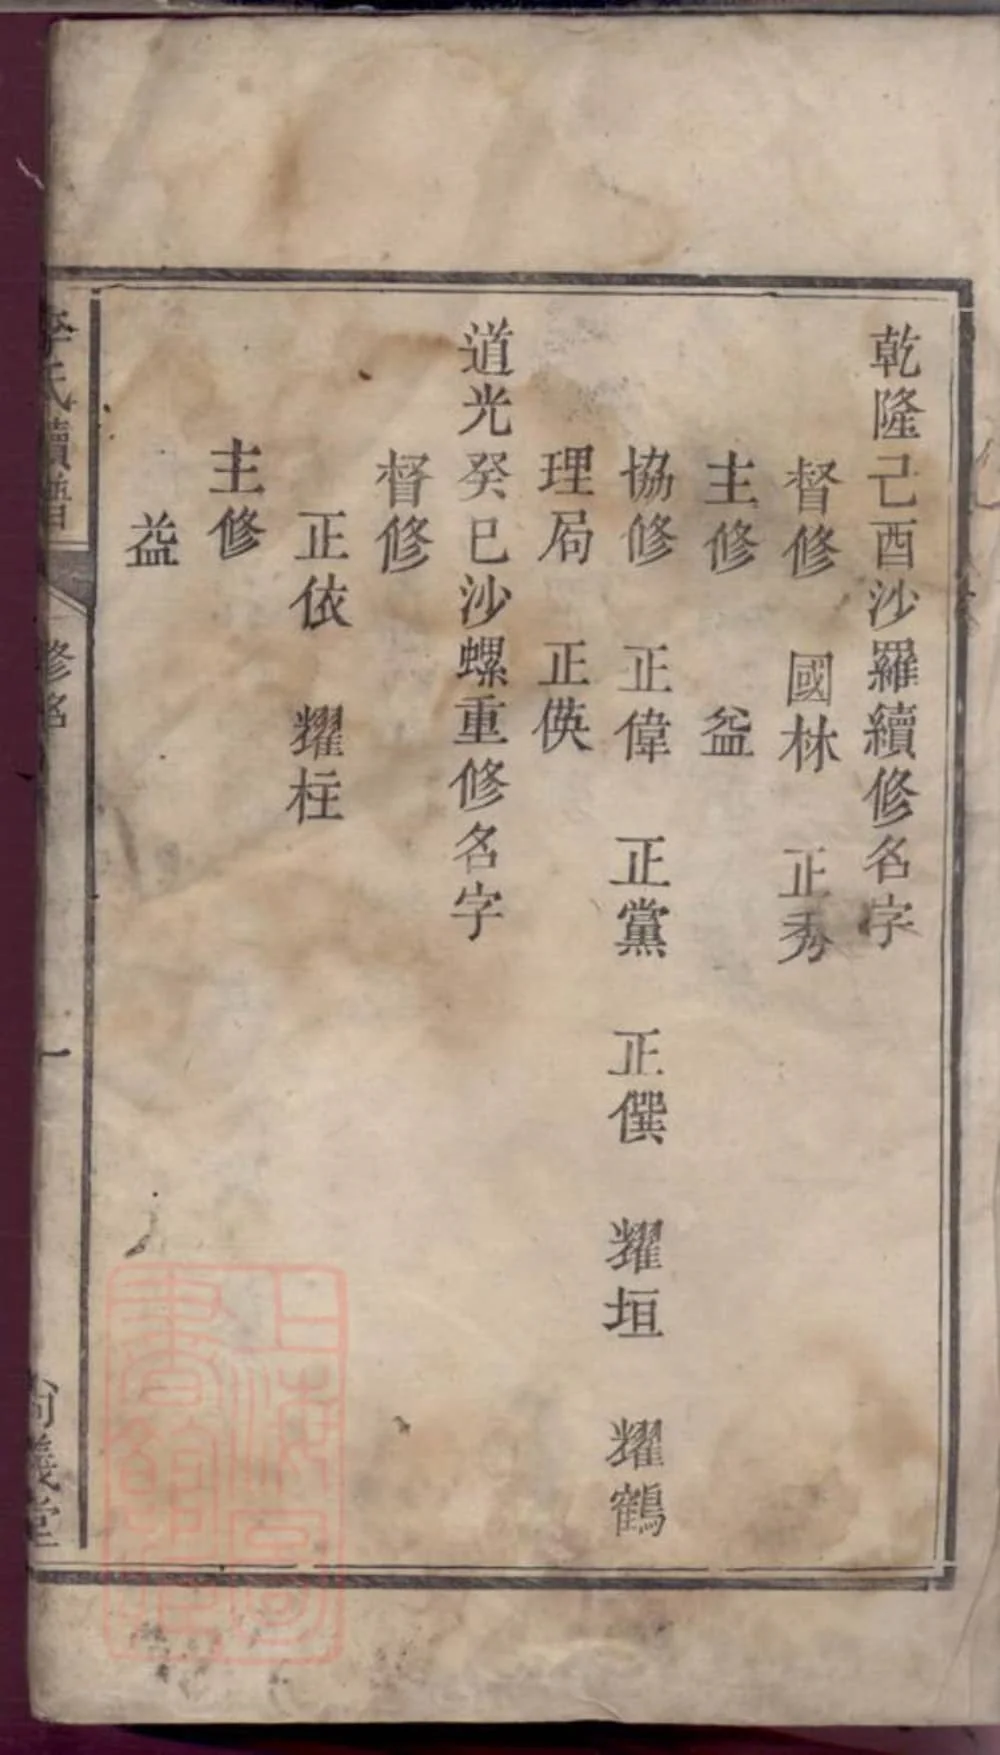 乾隆己酉沙羅續修名字
督修 國林 正秀
主修 益
協修 正偉 正黨 正僎 耀垣 耀鶴
理局 正偀
道光癸巳沙螺重修名字
督修
正依 耀柱
主修
益
李氏續譜 修名 一 尚義堂
上海圖書館藏